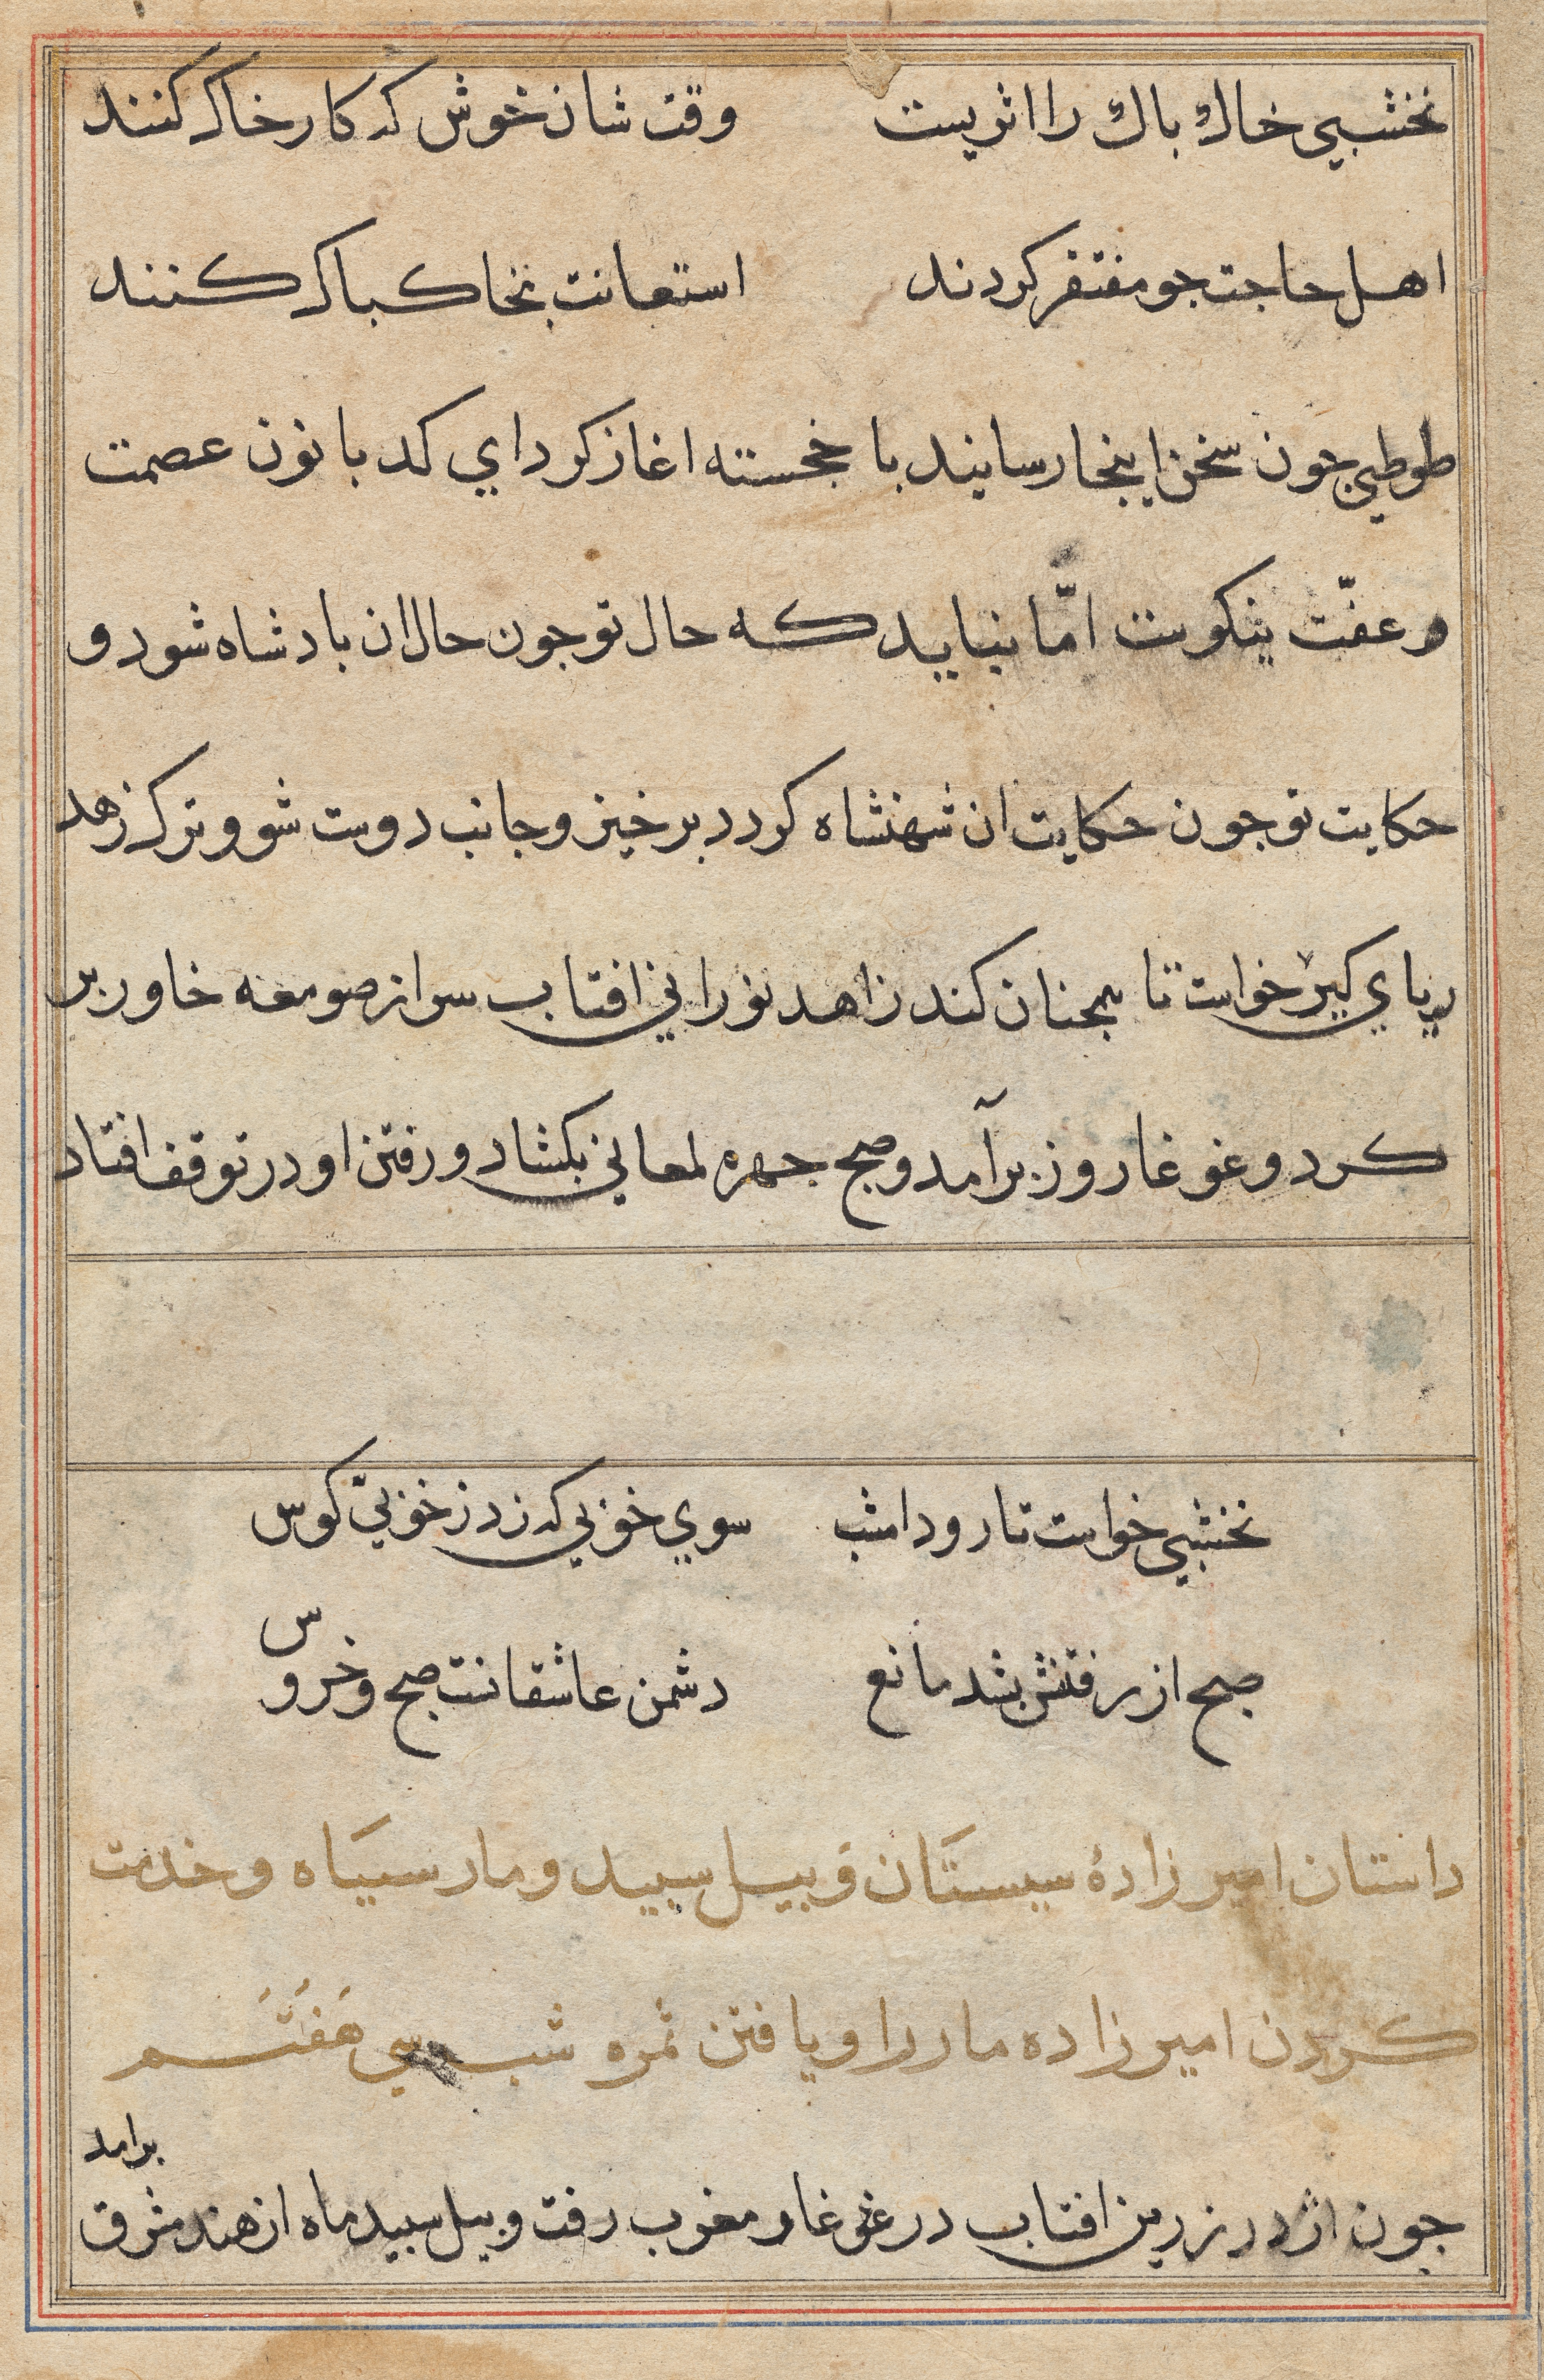 نخشبي خاك باك را اثريست وقت شان خوش كه كار خاك كنند
اهل حاجت جو مفتقر كردند استعانت بخاك باك كنند
طوطي جون سخن اينجا رسانيد با خجسته اغاز كرد اي كدبانون عصمت
و عفّت نيكوست امّا نبايد كه حال تو جون حال ان بادشاه شود و
حكايت تو جون حكايت ان شهنشاه كردد برخيز و جانب دوست شو و ترك زهد
ريايي كير خواست تا همجنان كند زاهد نوراني افتاب سر از صومعه خاور بر
كرد و غوغا روز برآمد و صبح جهره لمعاني بكشاد و رفتن او در توقف افتاد
نخشبي خواست تا رود امشب سوي خوبي كه زد ز خوبيّ كوس
صبح از رفتنش بشد مانع دشمن عاشقانست صبح و خروس
داستان امير زادهٔ سيستان و بيل سبيد و مار سياه و خدمت
كردن امير زاده مار را و يافتن ثمره شب سي هفتم
برامد
جون اژدر زرين افتاب در غار مغرب رفت و بيل سبيد ماه از هند مشرق